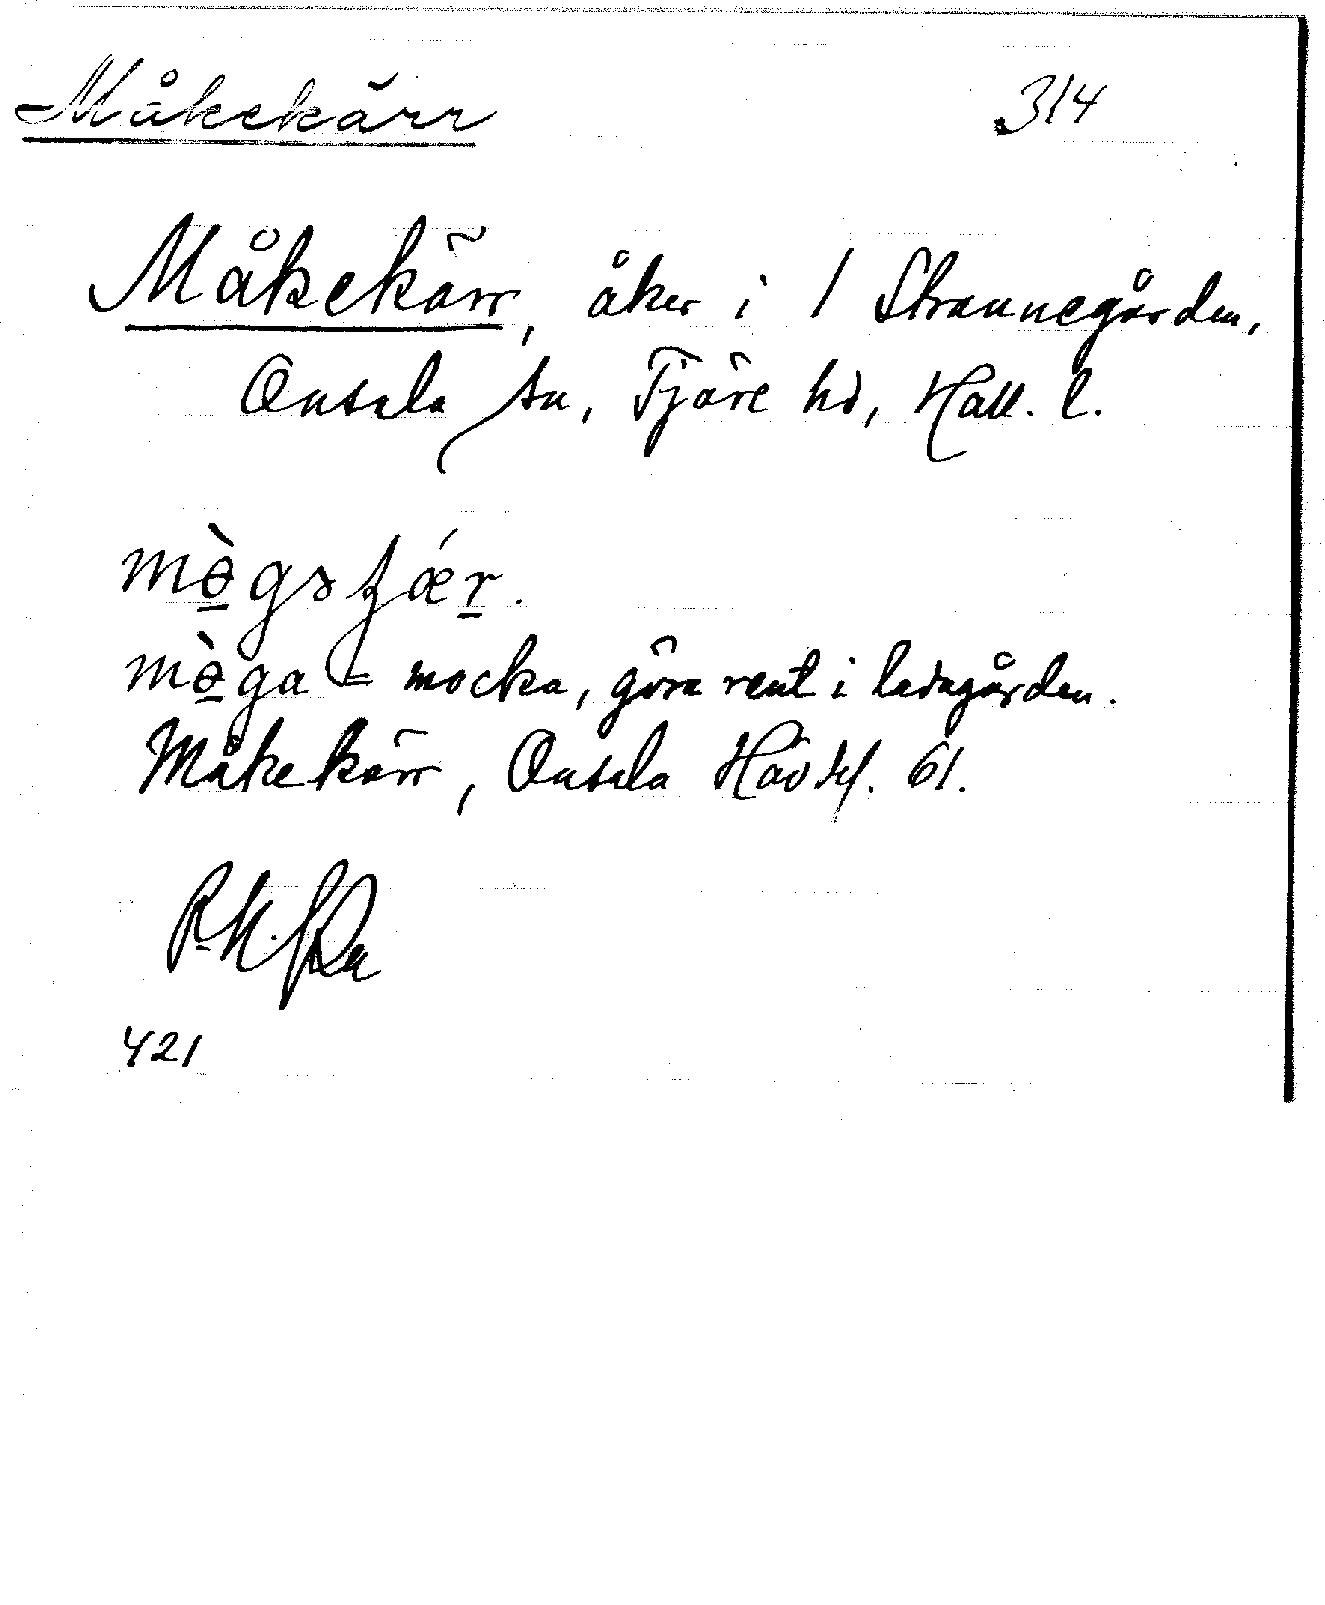 Måkekärr 314
Måkekärr, åker i 1 Strannegården,
Onsala sn, Fjäre hd, Hall. l.
mə̀gsʓǽr.
mə̀ga = mocka, göra rent i ladugården.
Måkekärr, Onsala Hävd
61.
421